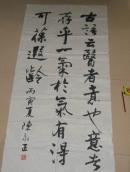 古語云醫者意也意者
存乎一氣於氣有得
可葆遐齡
丙寅夏